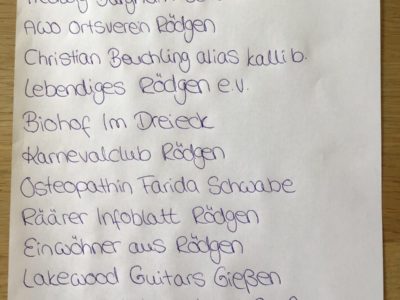 AWO Ortsveren Rödgen
Christian Beuchling alias kalli b.
Lebendiges Rödgen e.v.
Biohof Im Dreieck
Karnevalclub Rödgen
Osteopathin Farida Schwabe
Räärer Infoblatt Rödgen
Einwöhner aus Rödgen
Lakewood Guitars Gießen